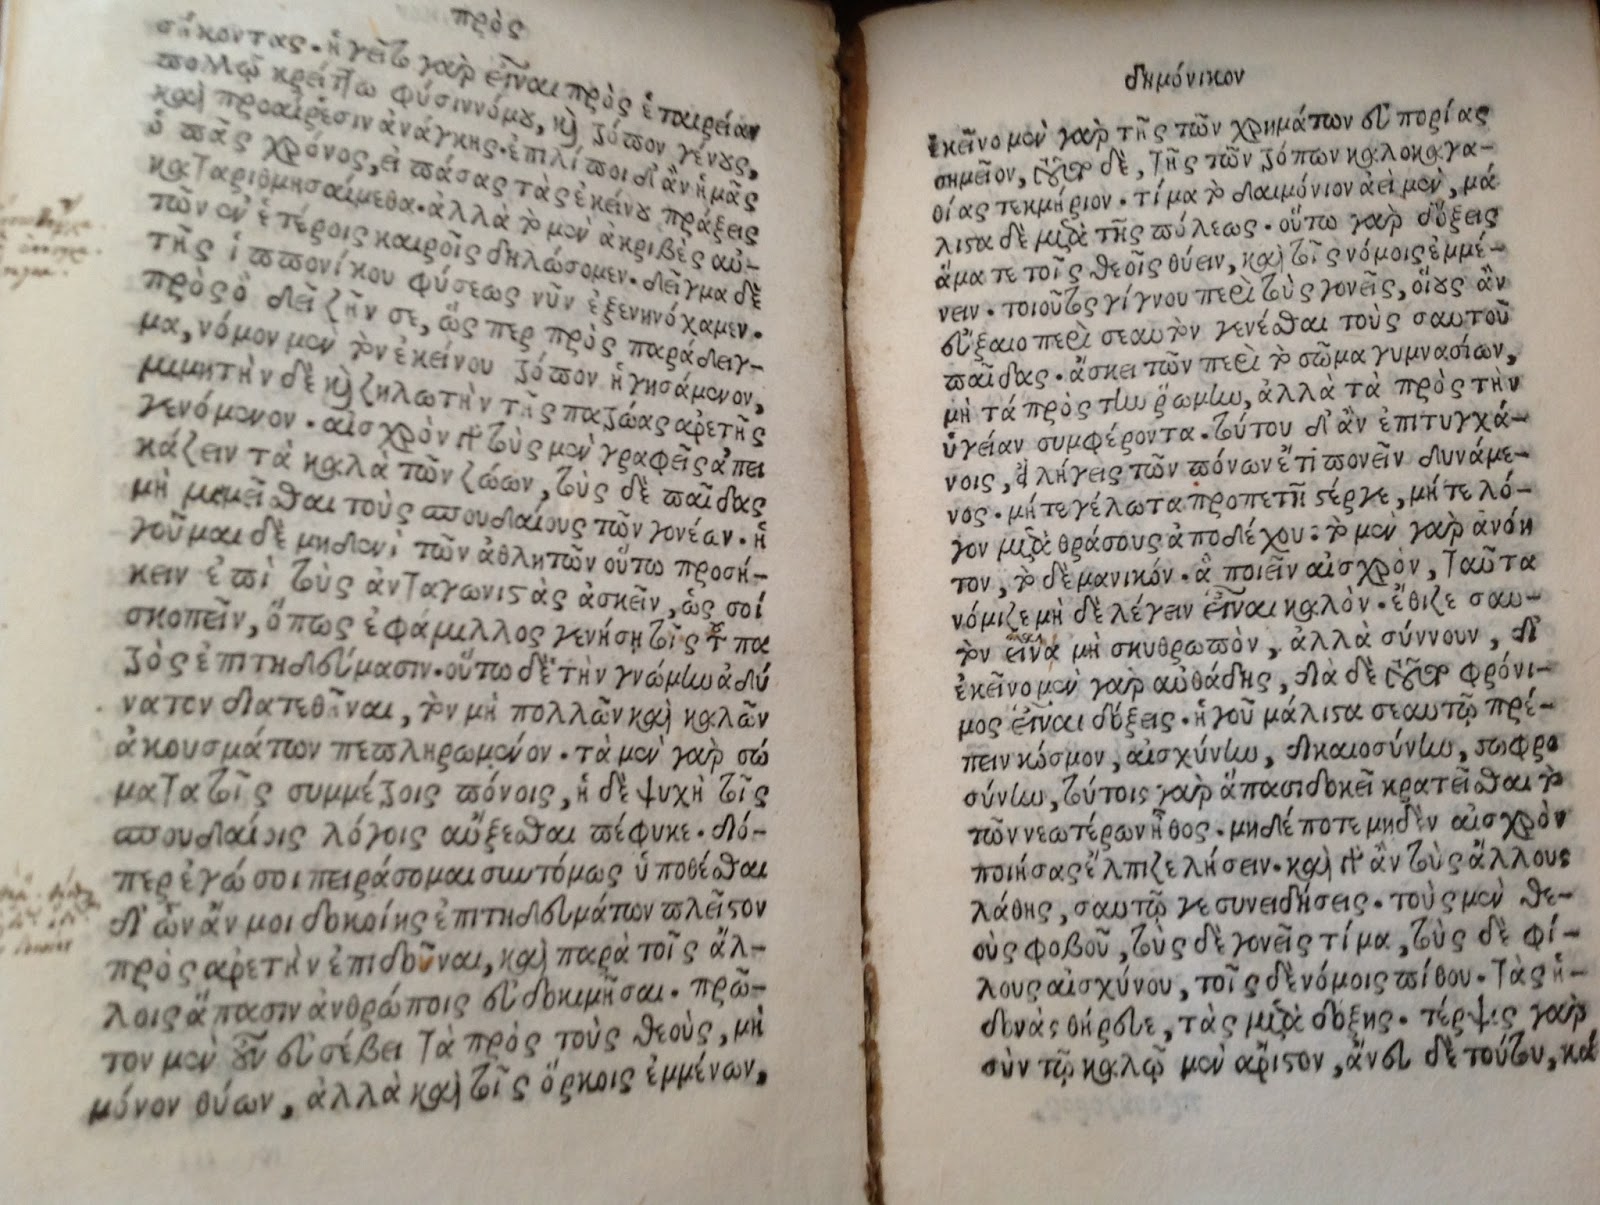 πρὸς
σήκοντας. ἡγεῖτο γὰρ εἶναι πρὸς ἑταιρείαν
πολλῷ κρείττω φύσιν νόμου, καὶ τρόπον γένους,
καὶ προαίρεσιν ἀνάγκης. ἐπιλίποι δ' ἂν ἡμᾶς
ὁ πᾶς χρόνος, εἰ πάσας τὰς ἐκείνου πράξεις
καταριθμησαίμεθα. ἀλλὰ τὸ μὲν ἀκριβὲς αὐ-
τῶν ἐν ἑτέροις καιροῖς δηλώσομεν. δεῖγμα δὲ
τῆς ἱππονίκου φύσεως νῦν ἐξενηνόχαμεν.
πρὸς ὃ δεῖ ζῆν σε, ὥς περ πρὸς παράδειγ-
μα, νόμον μὲν τὸν ἐκείνου τρόπον ἡγησάμενον,
μιμητὴν δὲ καὶ ζηλωτὴν τῆς πατρώας ἀρετῆς
γενόμενον. αἰσχρὸν γὰρ τοὺς μὲν γραφεῖς ἀπει
κάζειν τὰ καλὰ τῶν ζώων, τοὺς δὲ παῖδας
μὴ μιμεῖσθαι τοὺς σπουδαίους τῶν γονέων. ἡ
γοῦμαι δὲ μηδενὶ τῶν ἀθλητῶν οὕτω προσή-
κειν ἐπὶ τοὺς ἀνταγωνιστὰς ἀσκεῖν, ὡς σοί
σκοπεῖν, ὅπως ἐφάμιλλος γενήσῃ τοῖς τ πα
τρὸς ἐπιτηδεύμασιν. οὕτω δὲ τὴν γνώμην ἀδύ
νατον διατεθῆναι, τὸν μὴ πολλῶν καὶ καλῶν
ἀκουσμάτων πεπληρωμένον. τὰ μὲν γὰρ σώ
ματα τοῖς συμμέτροις πόνοις, ἡ δὲ ψυχὴ τοῖς
σπουδαίοις λόγοις αὔξεσθαι πέφυκε. διό-
περ ἐγώ σοι πειράσομαι συντόμως ὑποθέσθαι
δι' ὧν ἄν μοι δοκοίης ἐπιτηδευμάτων πλεῖστον
πρὸς ἀρετὴν ἐπιδοῦναι, καὶ παρὰ τοῖς ἄλ-
λοις ἅπασιν ἀνθρώποις εὐδοκιμῆσαι. πρῶ-
τον μὲν οὖν εὐσέβει τὰ πρὸς τοὺς θεοὺς, μὴ
μόνον θύων, ἀλλὰ καὶ τοῖς ὅρκοις ἐμμένων,
δημόνικον
ἐκεῖνο μὲν γὰρ τῆς τῶν χρημάτων εὐπορίας
σημεῖον, τοῦτο δὲ, τῆς τῶν τρόπων καλοκαγα-
θίας τεκμήριον. τίμα τὸ δαιμόνιον ἀεὶ μὲν, μά
λιστα δὲ μετὰ τῆς πόλεως. οὕτω γὰρ δόξεις
ἅμα τε τοῖς θεοῖς θύειν, καὶ τοῖς νόμοις ἐμμέ-
νειν. τοιοῦτος γίγνου περὶ τοὺς γονεῖς, οἵους ἂν
εὔξαιο περὶ σεαυτὸν γενέσθαι τοὺς σαυτοῦ
παῖδας. ἄσκει τῶν περὶ τὸ σῶμα γυμνασίων,
μὴ τά πρὸς τὴν ῥώμην, ἀλλὰ τὰ πρὸς τὴν
ὑγείαν συμφέροντα. τούτου δ' ἂν ἐπιτυγχά-
νοις, εἰ λήγεις τῶν πόνων ἔτι πονεῖν δυνάμε-
νος. μήτε γέλωτα προπετῆ στέργε, μήτε λό-
γον μετὰ θράσους ἀποδέχου: τὸ μὲν γὰρ ἀνόη
τον, τὸ δὲ μανικόν. ἃ ποιεῖν αἰσχρὸν, ταῦτα
νόμιζε μὴ δὲ λέγειν εἶναι καλὸν. ἔθιζε σαυ-
τὸν εἶναι μὴ σκυθρωπὸν, ἀλλὰ σύννουν, δι'
ἐκεῖνο μὲν γὰρ αὐθάδης, διὰ δὲ τοῦτο φρόνι-
μος εἶναι δόξεις. ἡγοῦ μάλιστα σεαυτῷ πρέ-
πειν κόσμον, αἰσχύνην, δικαιοσύνην, σωφρο
σύνην, τούτοις γὰρ ἅπασι δοκεῖ κρατεῖσθαι τὸ
τῶν νεωτέρων ἦθος. μηδέποτε μηδὲν αἰσχρὸν
ποιήσας ἔλπιζε λήσειν. καὶ γὰρ ἂν τοὺς ἄλλους
λάθης, σαυτῷ γε συνειδήσεις. τοὺς μὲν θε-
οὺς φοβοῦ, τοὺς δὲ γονεῖς τίμα, τοὺς δὲ φί-
λους αἰσχύνου, τοῖς δὲ νόμοις πίθου. τὰς ἡ-
δονὰς θήρευε, τὰς μετὰ δόξης. τέρψις γὰρ
σὺν τῷ καλῷ μὲν ἄριστον, ἄνευ δὲ τούτου, κά